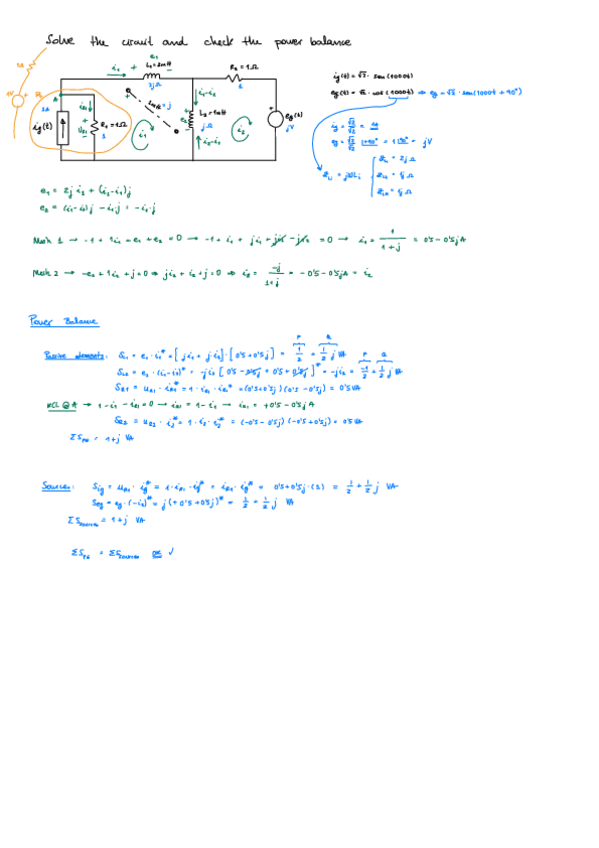 Solve the circuit and check the power balance
e₁
i₁ + L₁=2mH −
2jΩ
R₂=1Ω
1
A
1A
ig(t)
R₁=1Ω
1
i₁
i₂
i₁-i₂
i₂-i₁
L₂=1mH
jΩ
e₂
eg(t)
jV
1V
ig(t) = √2 · sen(1000t)
eg(t) = √2 · cos(1000t) ⇒ eg = √2 · sen(1000t + 90°)
ig = √2/√2 = 1A
eg = √2/√2 |+90° = 1|90° = jV
e₁ = 2j i₁ + (i₂-i₁)j
e₂ = (i₁-i₂)j - i₁j = -i₂j
Mesh 1 → -1 + 1i₁ + e₁ + e₂ = 0 → -1 + i₁ + ji₁ + ji₂ - ji₂ = 0 → i₁ = 1/(1+j) = 0'5 - 0'5j A
Mesh 2 → -e₂ + 1i₂ + j = 0 ⇒ ji₂ + i₂ + j = 0 ⇒ i₂ = -j/(1+j) = -0'5 - 0'5j A = i₂
Power Balance
P Q
Passive elements: S_L1 = e₁ · i₁* = [ji₁ + j·i₂] · [0'5 + 0'5j] = 1/2 + 1/2 j VA
P Q
S_L2 = e₂ · (i₁-i₂)* = -ji₂ [0'5 - 0'5j + 0'5 + 0'5j]* = -ji₂ = -1/2 + 1/2 j VA
S_R1 = u_R1 · i_R1* = 1 · i_R1 · i_R1* = (0'5+0'5j)(0'5-0'5j) = 0'5 VA
KCL @ A → 1 - i₁ - i_R1 = 0 → i_R1 = 1 - i₁ → i_R1 = +0'5 + 0'5j A
S_R2 = u_R2 · i₂* = 1 · i₂ · i₂* = (-0'5 - 0'5j)(-0'5 + 0'5j) = 0'5 VA
ΣS_PE = 1+j VA
Sources: S_ig = u_R1 · ig* = 1 · i_R1 · ig* = i_R1 · ig* = 0'5 + 0'5j · (1) = 1/2 + 1/2 j VA
S_eg = eg · (-i₂)* = j(+0'5 + 0'5j)* = 1/2 + 1/2 j VA
ΣS_sources = 1+j VA
ΣS_PE = ΣS_sources OK ✓